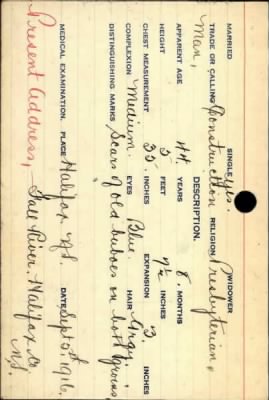 MARRIED SINGLE Yes. WIDOWER
TRADE OR CALLING Construction RELIGION Presbyterian,
Man,
DESCRIPTION.
APPARENT AGE 44 YEARS 8. MONTHS
HEIGHT 5 FEET 7½ INCHES
CHEST MEASUREMENT 35 INCHES EXPANSION 3 INCHES
COMPLEXION Medium. EYES Blue. HAIR Gray.
DISTINGUISHING MARKS Scars of old buboes in both groins,
MEDICAL EXAMINATION. PLACE Halifax N.S. DATE Sept 5th 1916,
Present address,— Fall River. Halifax Co.
N.S.